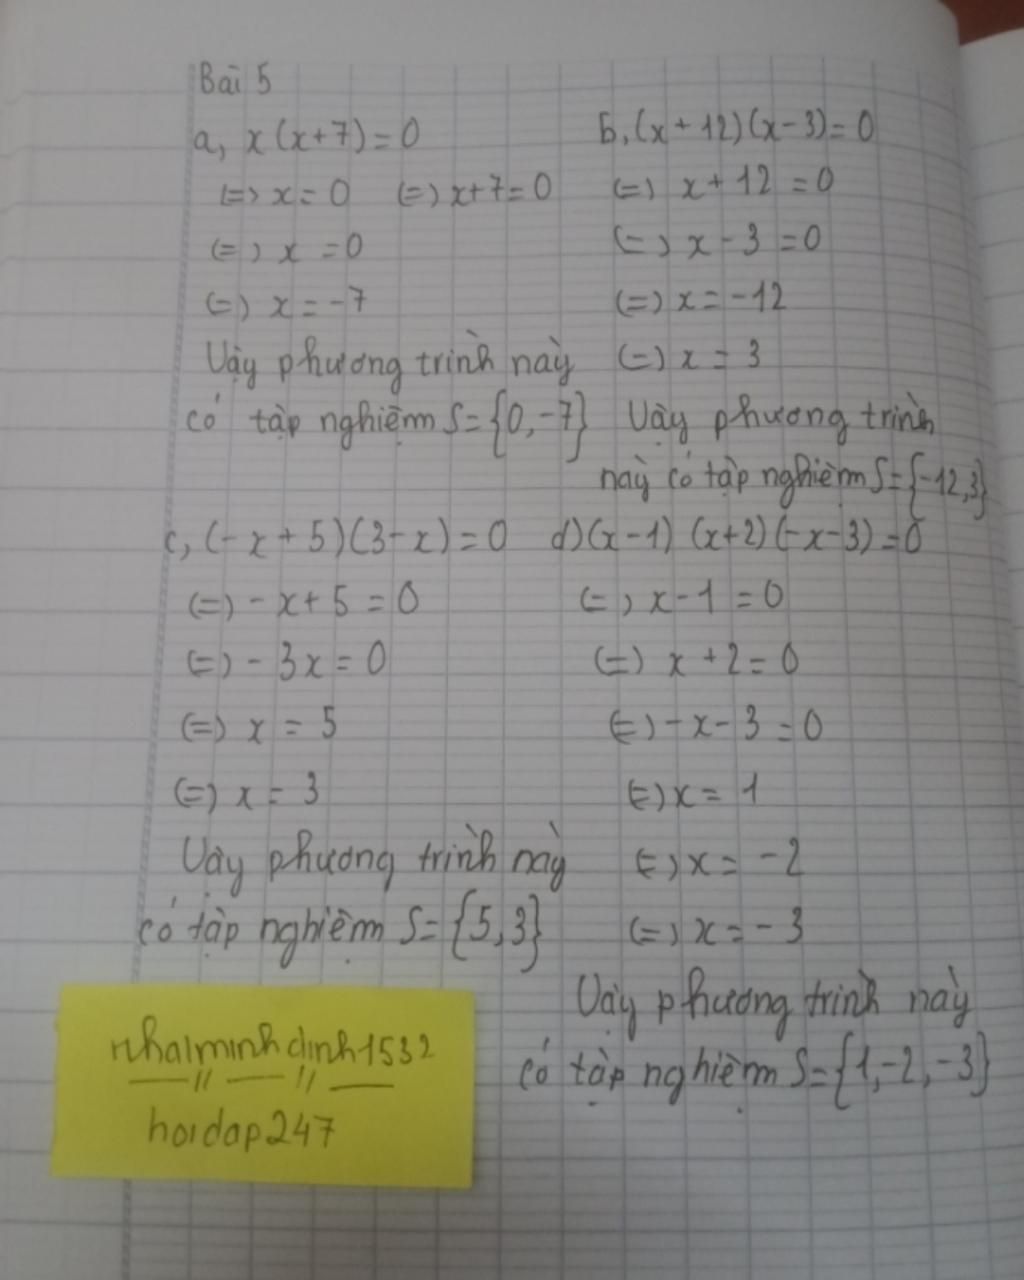 Bài 5
a, x(x+7)=0
(=) x=0 (=) x+7=0
(=) x=0
(=) x=-7
Vậy phương trình này
có tập nghiệm S={0,-7}
b, (x+12)(x-3)=0
(=) x+12=0
(=) x-3=0
(=) x=-12
(=) x=3
Vậy phương trình
này có tập nghiệm S={-12,3}
c, (-x+5)(3-x)=0
(=) -x+5=0
(=) -3x=0
(=) x=5
(=) x=3
Vậy phương trình này
có tập nghiệm S={5,3}
d) (x-1)(x+2)(-x-3)=0
(=) x-1=0
(=) x+2=0
(=) -x-3=0
(=) x=1
(=) x=-2
(=) x=-3
Vậy phương trình này
có tập nghiệm S={1,-2,-3}
nhalminhdinh1532
hoidap247